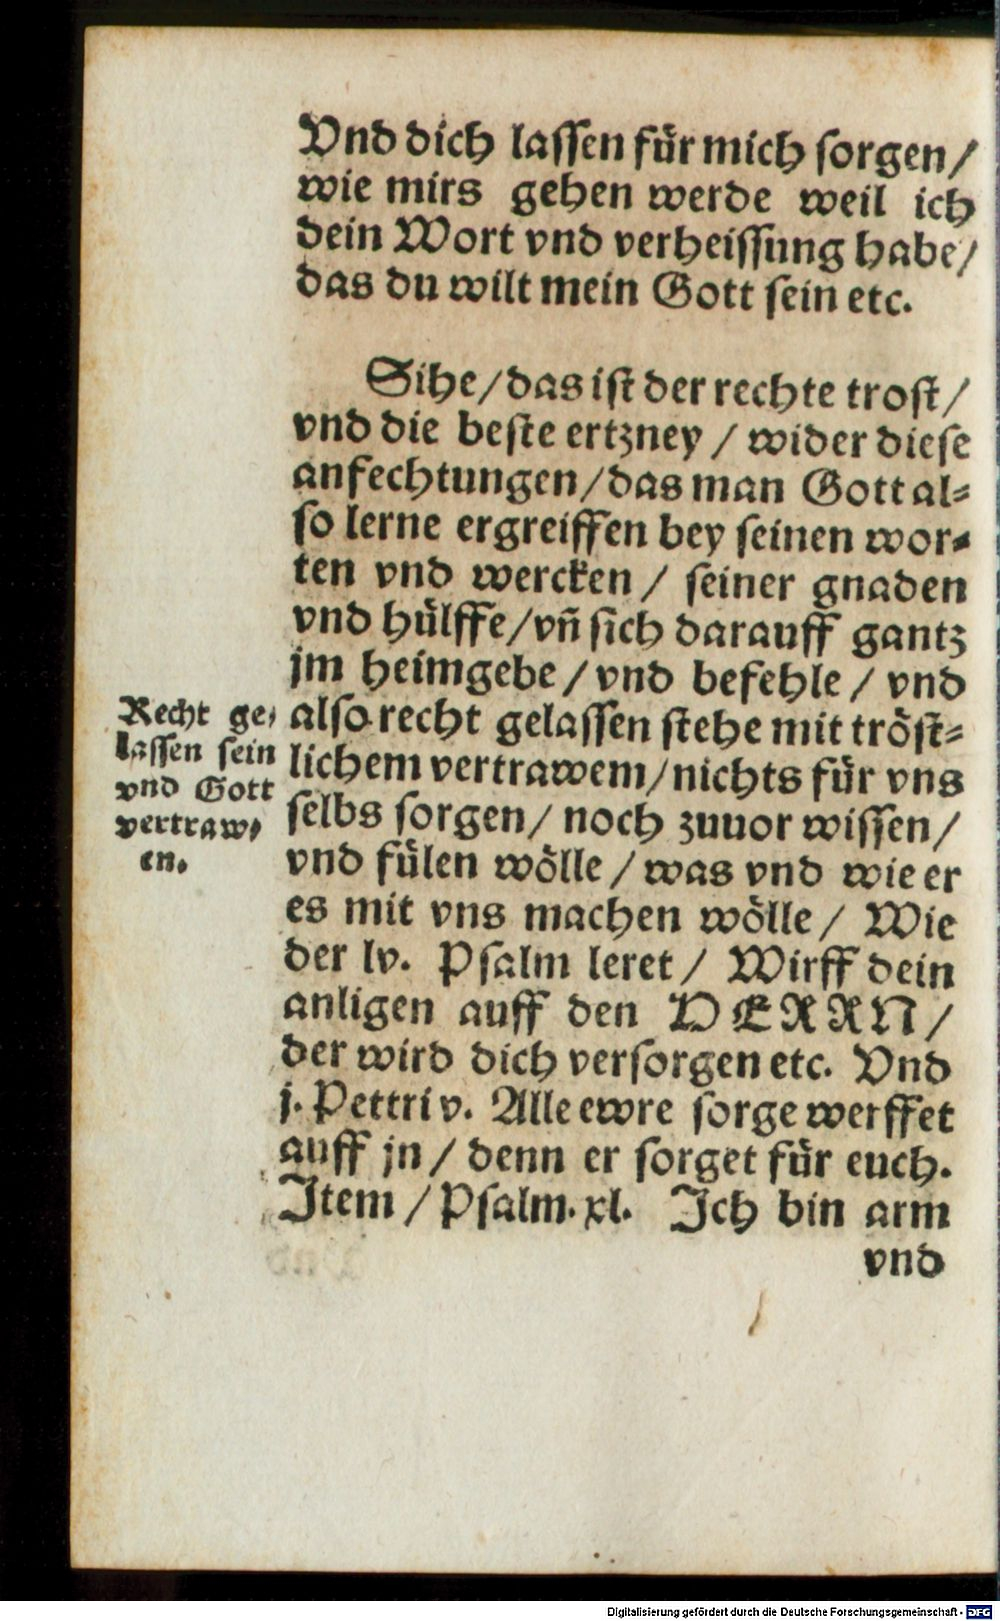 Vnd dich laſſen fuͤr mich ſorgen /
wie mirs gehen werde weil ich
dein Wort vnd verheiſſung habe /
das du wilt mein Gott ſein etc.
Sihe / das iſt der rechte troſt /
vnd die beſte ertzney / wider dieſe
anfechtungen / das man Gott al⸗
ſo lerne ergreiffen bey ſeinen wor⸗
ten vnd wercken / ſeiner gnaden
vnd huͤlffe / vñ ſich darauff gantz
jm heimgebe / vnd befehle / vnd
alſo recht gelaſſen ſtehe mit troͤſt⸗
lichem vertrawem / nichts fuͤr vns
ſelbs ſorgen / noch zuuor wiſſen /
vnd fuͤlen woͤlle / was vnd wie er
es mit vns machen woͤlle / Wie
der lv. Pſalm leret / Wirff dein
anligen auff den HERRN /
der wird dich verſorgen etc. Vnd
j. Pettri v. Alle ewre ſorge werffet
auff jn / denn er ſorget fuͤr euch.
Item / Pſalm. xl. Ich bin arm
vnd
Recht ge⸗
laſſen ſein
vnd Gott
vertraw⸗
en.
Digitalisierung gefördert durch die Deutsche Forschungsgemeinschaft - DFG